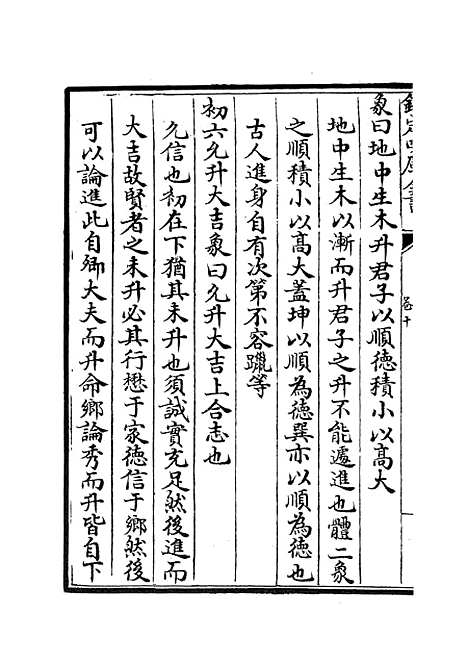 欽定四庫全書
卷十
象曰地中生木升君子以順徳積小以髙大
地中生木以漸而升君子之升不能遽進也體二象
之順積小以髙大蓋坤以順為徳巽亦以順為徳也
古人進身自有次第不容躐等
初六允升大吉象曰允升大吉上合志也
允信也初在下猶其未升也須誠實充足然後進而
大吉故賢者之未升必其行懋于家徳信于鄉然後
可以論進此自鄉大夫而升命鄉論秀而升皆自下